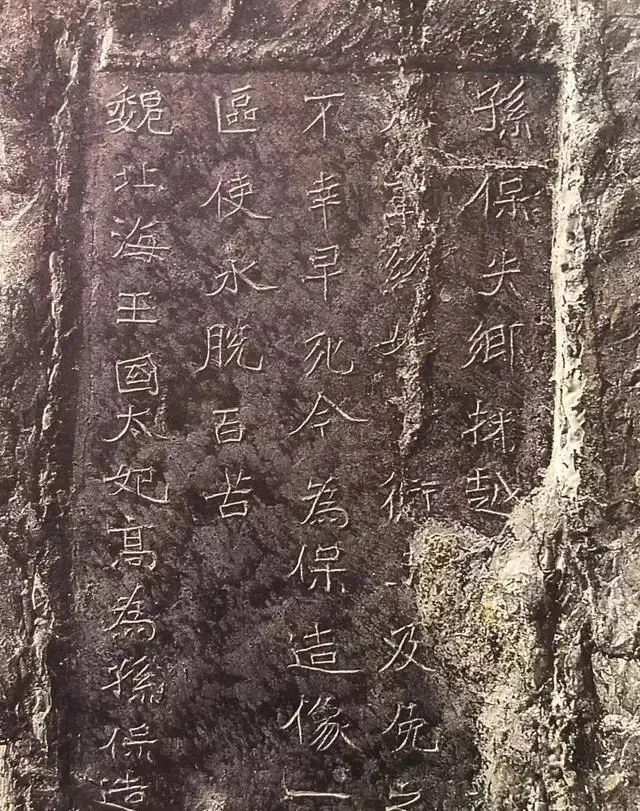 孫保失鄉越
及免
不幸早死今為保造像一
區使永脫百苦
魏北海王國太妃高為孫保造